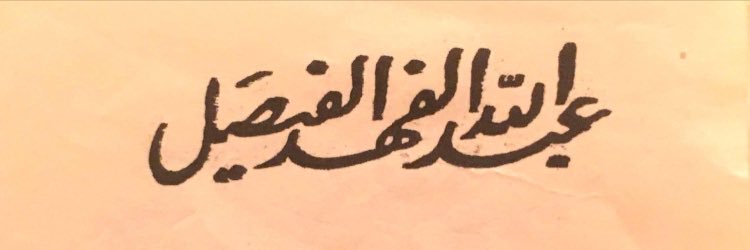 عبدالله الفهد الفيصل